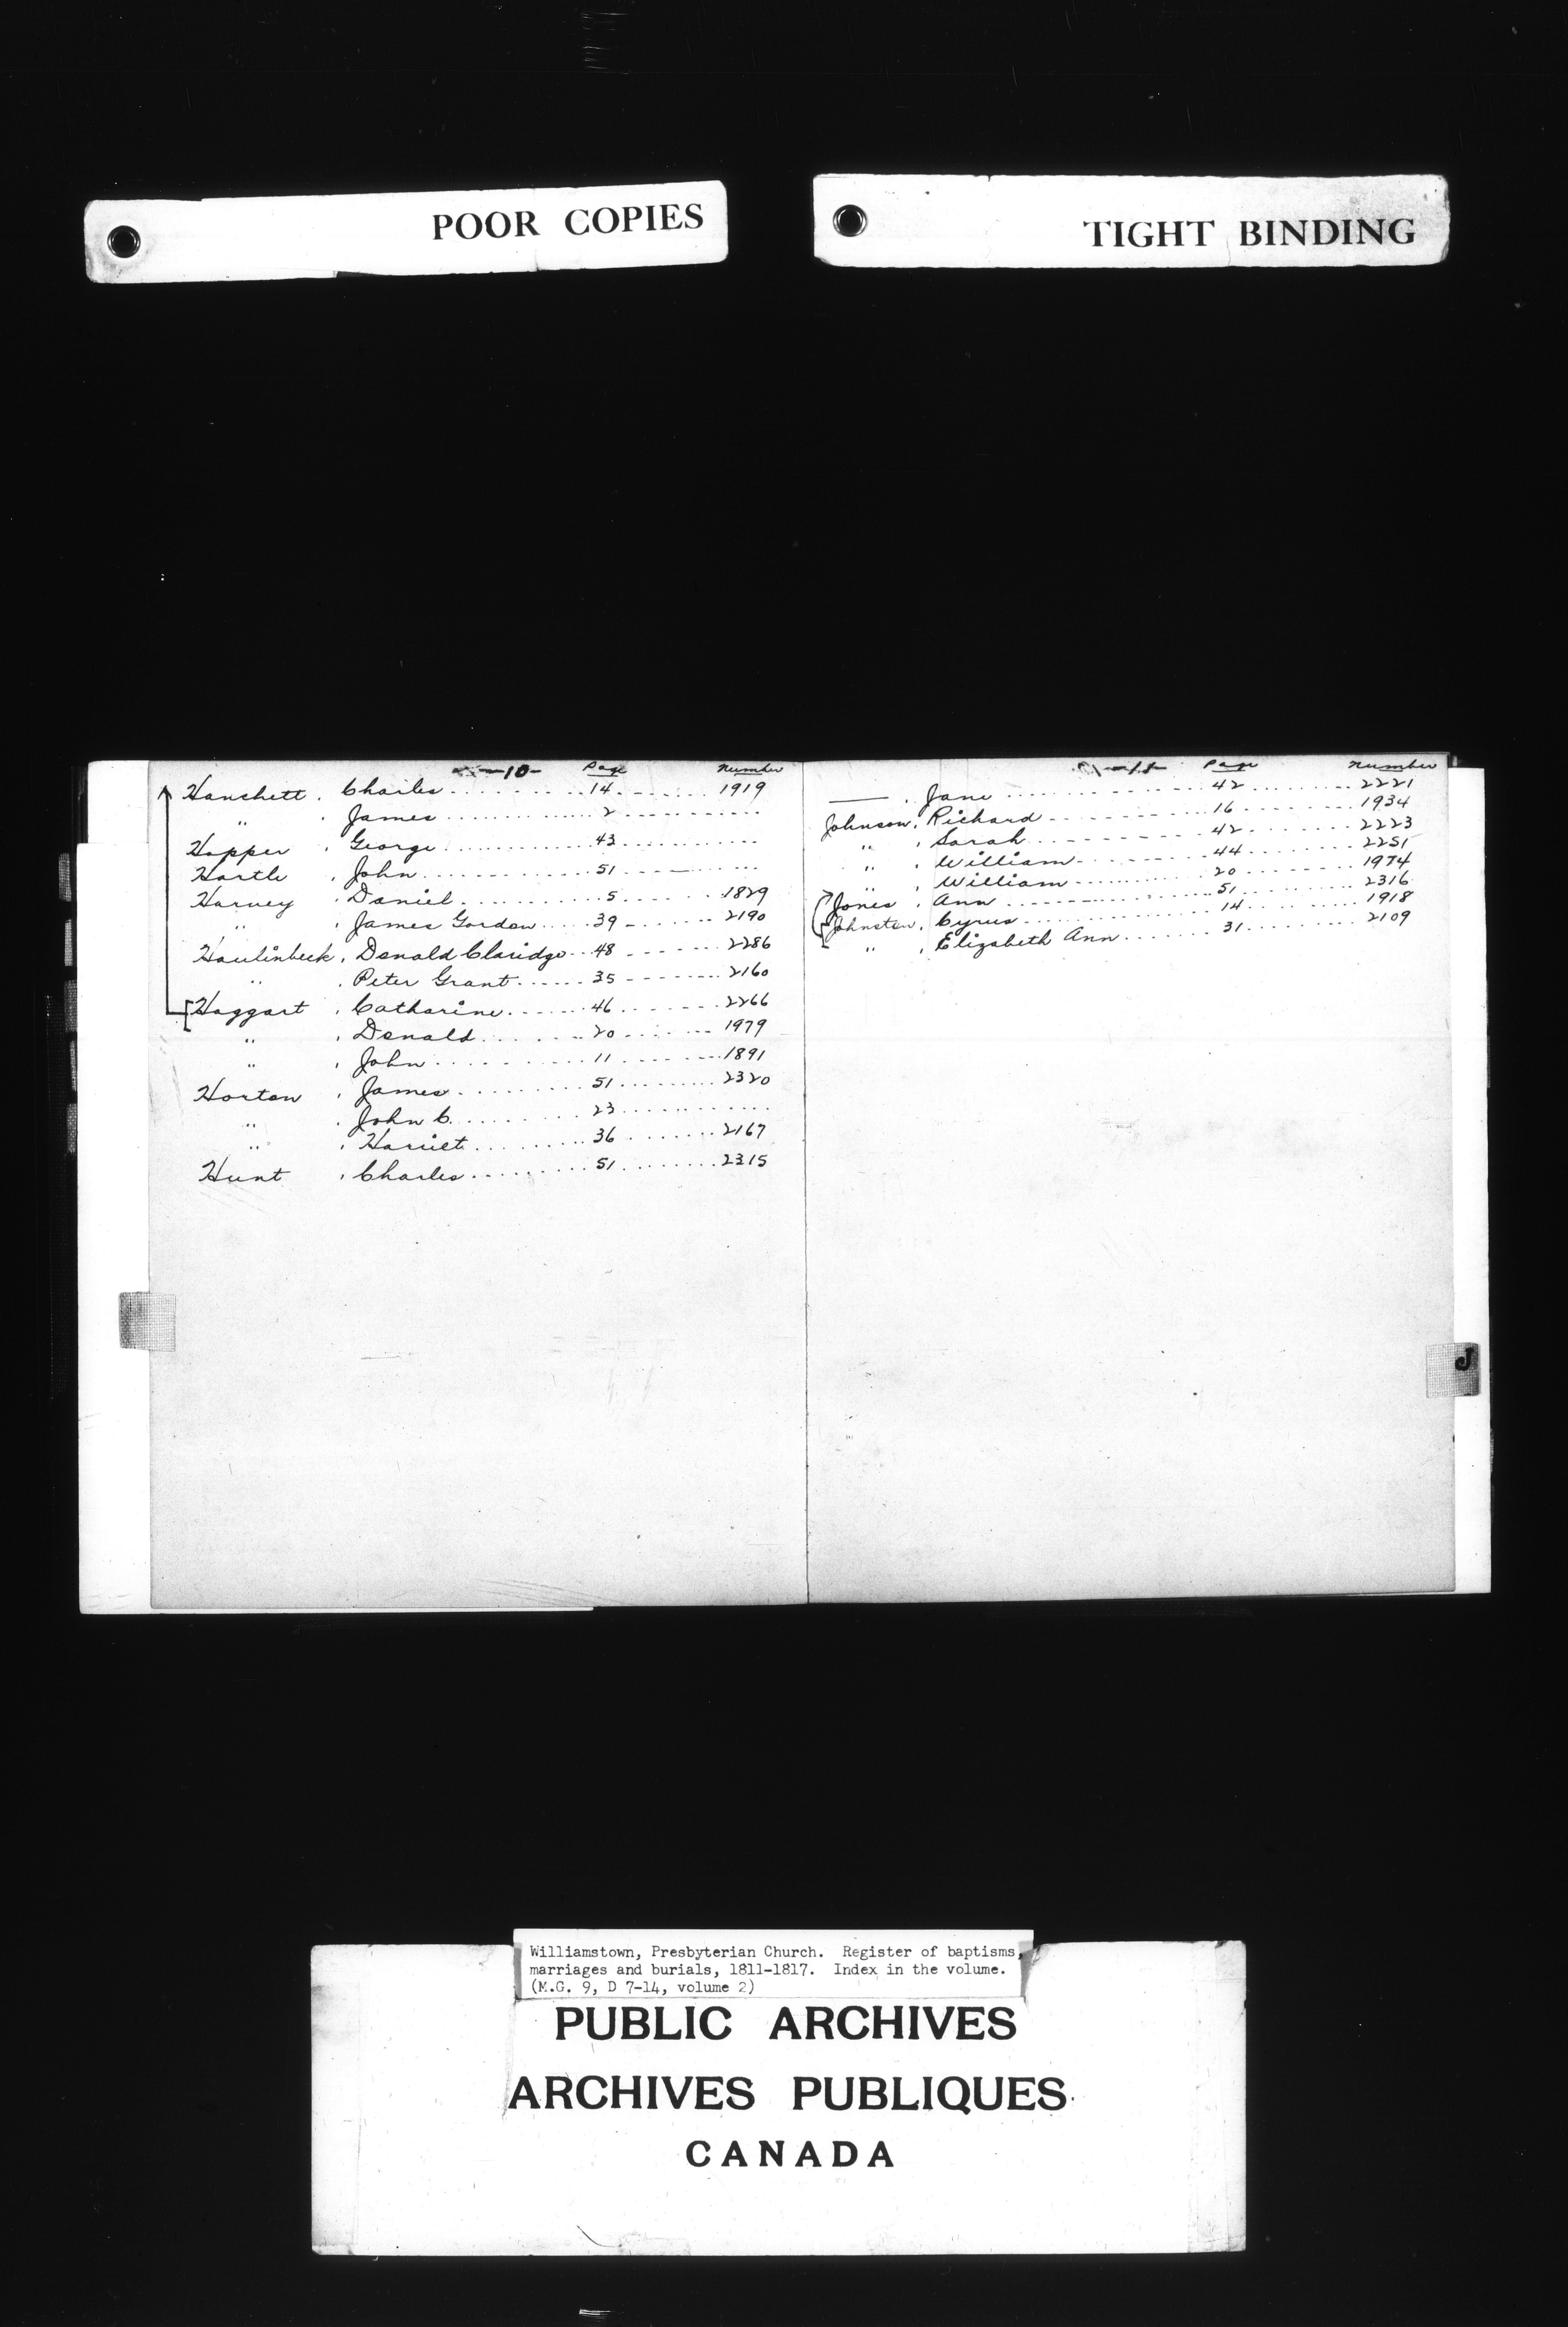 POOR COPIES
TIGHT BINDING
-10- Page Number
Hanchett, Charles 14 1919
" , James 2
Hopper, George 43
Hartle, John 51
Harvey, Daniel 5 1829
" , James Gordon 39 2190
Haulinbeck, Donald Claridge 48 2286
" , Peter Grant 35 2160
Haggart, Catharine 46 2266
" , Donald 20 1979
" , John 11 1891
Horton, James 51 2320
" , John C. 23
" , Harriet 36 2167
Hunt, Charles 51 2315
-11- Page Number
—, Jane 42 2221
Johnson, Richard 16 1934
" , Sarah 42 2223
" , William 44 2251
" , William 20 1974
Jones, Ann 51 2316
Johnston, Cyrus 14 1918
" , Elizabeth Ann 31 2109
J
Williamstown, Presbyterian Church. Register of baptisms,
marriages and burials, 1811-1817. Index in the volume.
(M.G. 9, D 7-14, volume 2)
PUBLIC ARCHIVES
ARCHIVES PUBLIQUES
CANADA